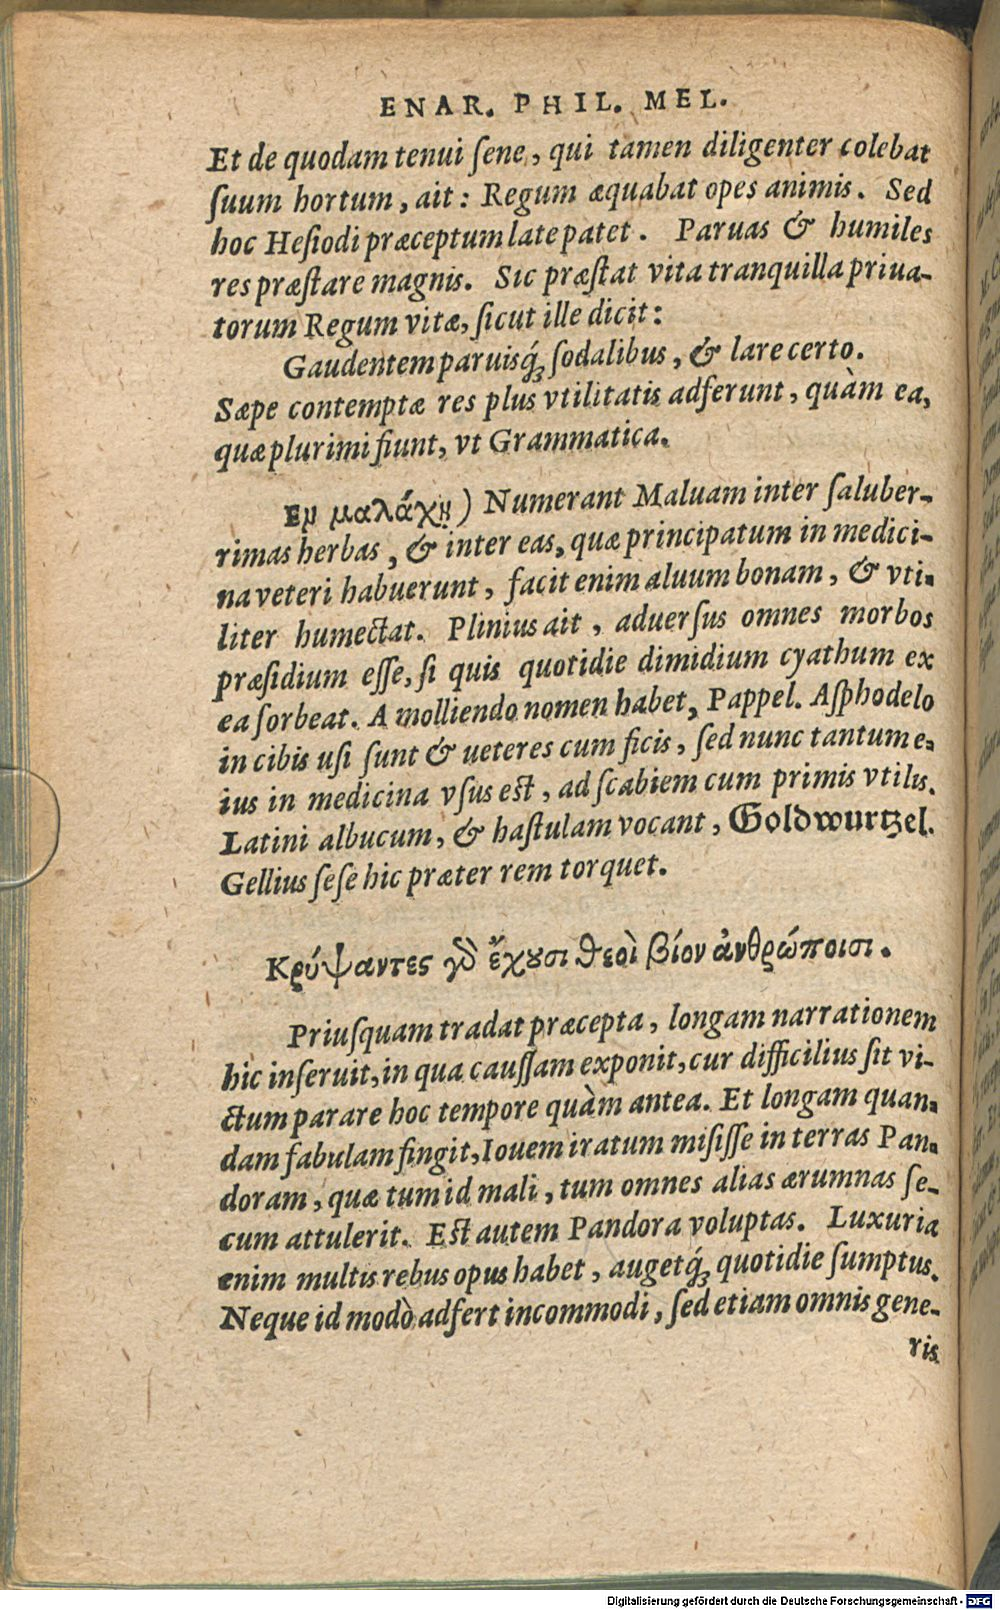 ENAR. PHIL. MEL.
Et de quodam tenui ſene, qui tamen diligenter colebat
ſuum hortum, ait: Regum æquabat opes animis. Sed
hoc Heſiodi præceptum late patet. Paruas & humiles
res præſtare magnis. Sic præſtat vita tranquilla priua-
torum Regum vitæ, ſicut ille dicit:
Gaudentem paruisq́ꝫ ſodalibus, & lare certo.
Sæpe contemptæ res plus vtilitatis adferunt, quàm ea,
quæ plurimi fiunt, vt Grammatica.
Εμ μαλάχῃ) Numerant Maluam inter ſaluber-
rimas herbas, & inter eas, quæ principatum in medici-
na veteri habuerunt, facit enim aluum bonam, & vti-
liter humectat. Plinius ait, aduerſus omnes morbos
præſidium eſſe, ſi quis quotidie dimidium cyathum ex
ea ſorbeat. A molliendo nomen habet, Pappel. Aſphodelo
in cibis uſi ſunt & ueteres cum ficis, ſed nunc tantum e-
ius in medicina vſus eſt, ad ſcabiem cum primis vtilis.
Latini albucum, & haſtulam vocant, Goldwurtzel.
Gellius ſeſe hic præter rem torquet.
Κρύψαντες γὸ ἔχȣσι θεοὶ βίον ἀνθρώποισι.
Priuſquam tradat præcepta, longam narrationem
hic inſeruit, in qua cauſſam exponit, cur difficilius ſit vi-
ctum parare hoc tempore quàm antea. Et longam quan-
dam fabulam fingit, Iouem iratum miſiſſe in terras Pan-
doram, quæ tum id mali, tum omnes alias ærumnas ſe-
cum attulerit. Eſt autem Pandora voluptas. Luxuria
enim multis rebus opus habet, augetq́ꝫ quotidie ſumptus.
Neque id modò adfert incommodi, ſed etiam omnis gene-
ris
Digitalisierung gefördert durch die Deutsche Forschungsgemeinschaft - DFG